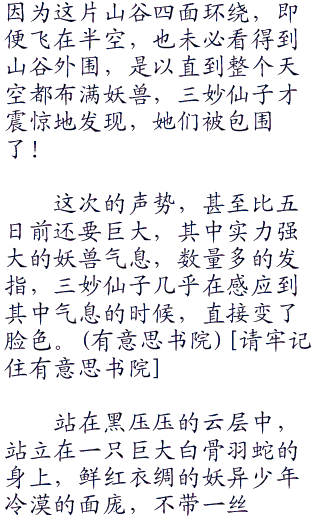 因为这片山谷四面环绕，即
便飞在半空，也未必看得到
山谷外围，是以直到整个天
空都布满妖兽，三妙仙子才
震惊地发现，她们被包围
了！
这次的声势，甚至比五
日前还要巨大，其中实力强
大的妖兽气息，数量多的发
指，三妙仙子几乎在感应到
其中气息的时候，直接变了
脸色。(有意思书院)[请牢记
住有意思书院]
站在黑压压的云层中，
站立在一只巨大白骨羽蛇的
身上，鲜红衣绸的妖异少年
冷漠的面庞，不带一丝